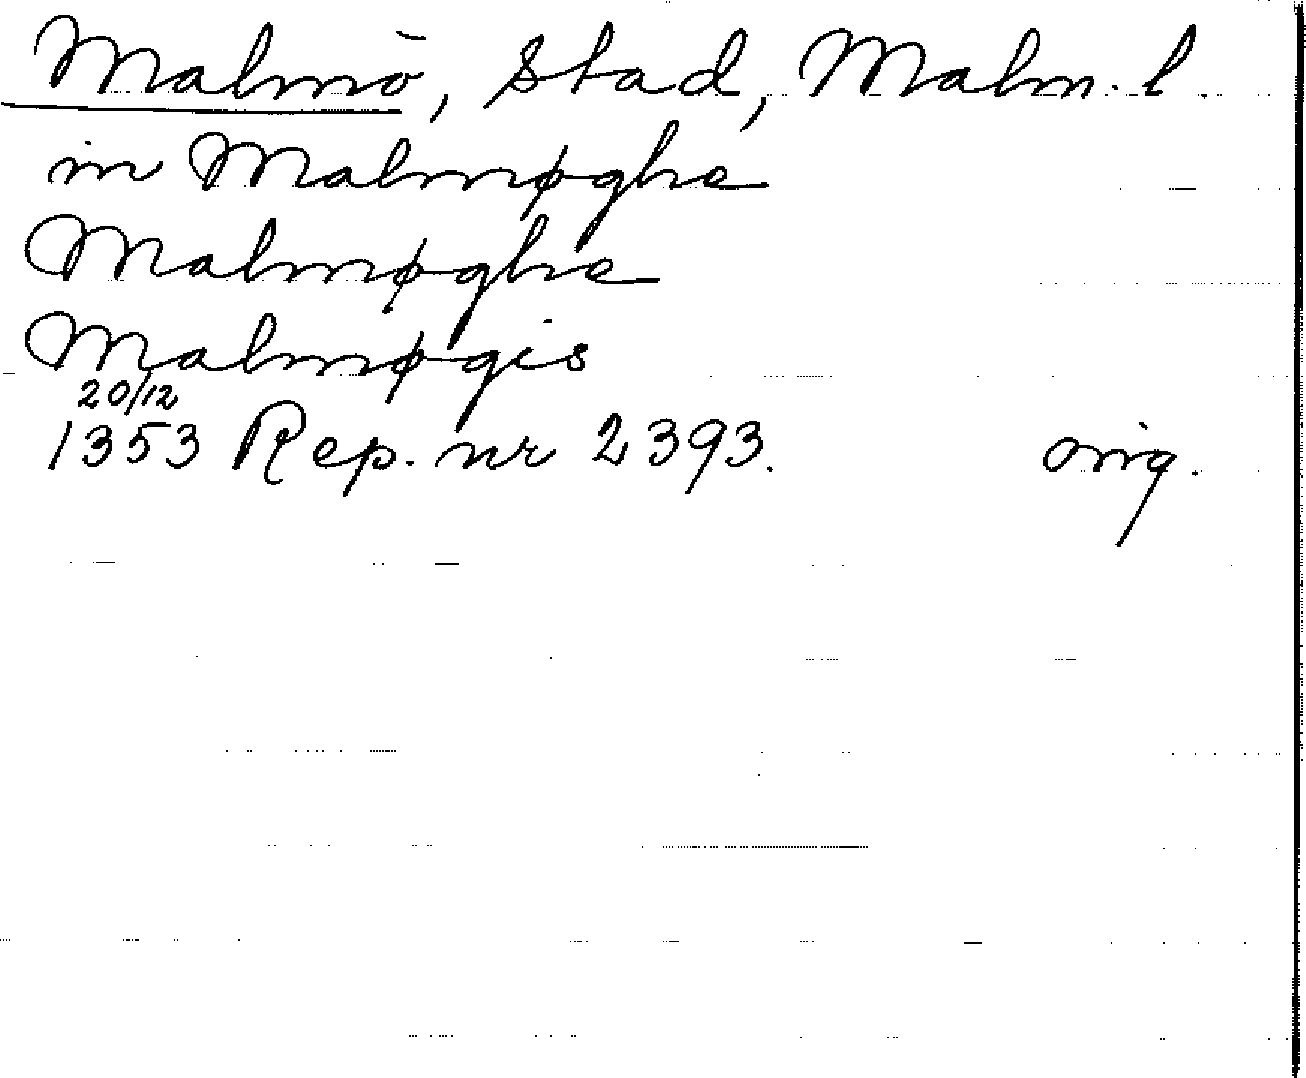 Malmö, Stad, Malm. l.
in Malmøghe
Malmøghe
Malmøgis
20/12
1353 Rep. nr 2393. orig.